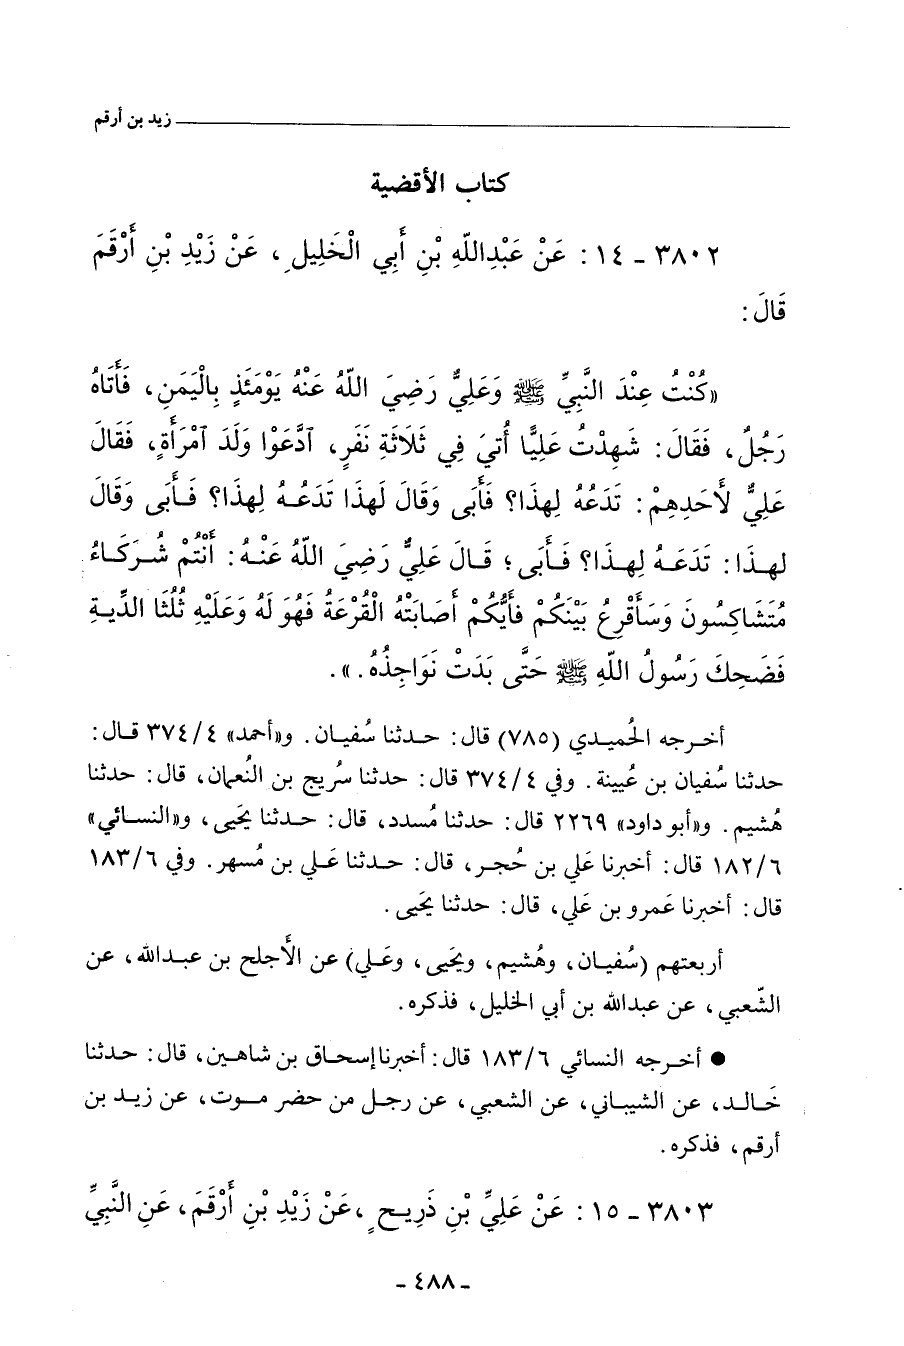 زيد بن أرقم
كتاب الأقضية
٣٨٠٢ ـ ١٤ : عَنْ عَبْدِاللّٰهِ بْنِ أَبِي الْخَلِيلِ ، عَنْ زَيْدِ بْنِ أَرْقَمَ
قَالَ :
«كُنْتُ عِنْدَ النَّبِيِّ ﷺ وَعَلِيٌّ رَضِيَ اللّٰهُ عَنْهُ يَوْمَئِذٍ بِالْيَمَنِ ، فَأَتَاهُ
رَجُلٌ ، فَقَالَ : شَهِدْتُ عَلِيًّا أُتِيَ فِي ثَلَاثَةِ نَفَرٍ، ٱدَّعَوْا وَلَدَ ٱمْرَأَةٍ، فَقَالَ
عَلِيٌّ لأَحَدِهِمْ : تَدَعُهُ لِهذَا؟ فَأَبَى وَقَالَ لَهذَا تَدَعُـهُ لِهذَا؟ فَـأَبى وَقَالَ
لِهـذَا : تَدَعَـهُ لِهـذَا؟ فَـأَبَى ؛ قَـالَ عَلِيٌّ رَضِيَ اللّٰهُ عَنْـهُ : أَنْتُمْ شُـرَكَـاءُ
مُتَشَاكِسُونَ وَسَأَقْرِعُ بَيْنَكُمْ فَأَيُّكُمْ أَصَابَتْهُ الْقُرْعَةُ فَهُوَ لَهُ وَعَلَيْهِ ثُلُثَا الدِّيةِ
فَضَحِكَ رَسُولُ اللّٰهِ ﷺ حَتَّى بَدَتْ نَوَاجِذُهُ . » .
أخـرجه الحُميـدي (٧٨٥) قال : حـدثنا سُفيـان . و«أحمد» ٣٧٤/٤ قـال :
حدثنا سُفيان بن عُيينة . وفي ٣٧٤/٤ قال : حدثنا سُريج بن النُعمان، قال : حدثنا
هُشيم . و«أبو داود» ٢٢٦٩ قال : حدثنا مُسدد، قال : حـدثنا يَحيى ، و«النسائي»
١٨٢/٦ قال : أخبرنا عَلي بن حُجـر ، قال : حـدثنا عَـلي بن مُسهر . وفي ١٨٣/٦
قال : أخبرنا عَمرو بن عَلي، قال : حدثنا يَحيى .
أربعتهم (سُفيـان ، وهُشيم ، ويَحيى ، وعَـلي) عن الأَجلح بن عبـدالله ، عن
الشّعبي ، عن عبدالله بن أبي الخليل ، فذكره .
● أخـرجه النسائي ١٨٣/٦ قال : أخبرنا إسحاق بن شاهين، قال : حـدثنا
خَالـد ، عن الشيباني ، عن الشعبي ، عن رجـل من حضر مـوت ، عن زيـد بن
أرقم ، فذكره .
٣٨٠٣ ـ ١٥ : عَنْ عَلِيِّ بْنِ ذَرِيـحٍ ، عَنْ زَيْدِ بْنِ أَرْقَمَ ، عَنِ النَّبِيِّ
ـ ٤٨٨ ـ